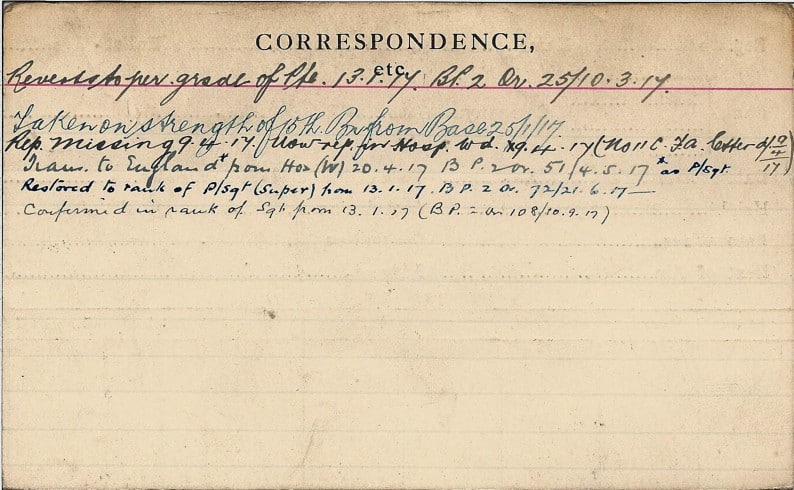 CORRESPONDENCE,
etc.
Reverts to per. grade of Pte. 13.1.17. Bf. 2 Or. 25/10.3.17.
Taken on strength of 15th Bn from Base 25/1/17.
Rep. Missing 9.4.17. Now rep. in Hosp. Wd. 9.4.17 (No 11 C. Fa. letter d/ 9/4/17)
Trans. to England* from Hos (W) 20.4.17 B P. 2 Or. 51/4.5.17 * as P/Sgt.
Restored to rank of P/Sgt (Super) from 13.1.17. B P. 2 Or. 72/21.6.17—
Confirmed in rank of Sgt from 13.1.17 (B P. 2 Or 108/10.9.17)